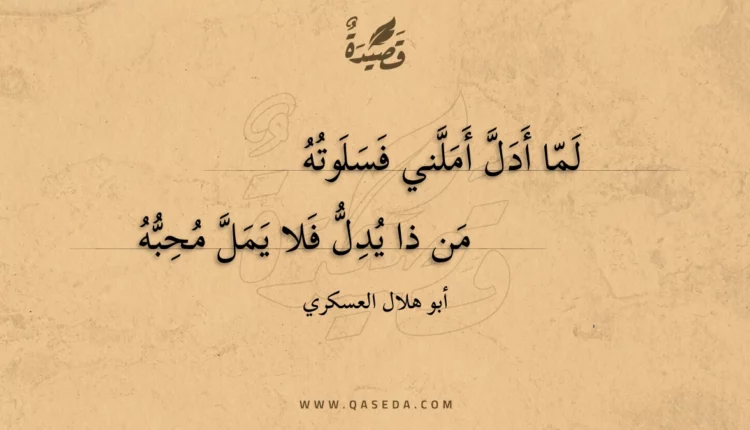 قَصِيْدَةٌ
لَمّا أَدَلَّ أَمَلَّني فَسَلَوتُهُ
مَن ذا يُدِلُّ فَلا يَمَلَّ مُحِبُّهُ
أبو هلال العسكري
WWW.QASEDA.COM